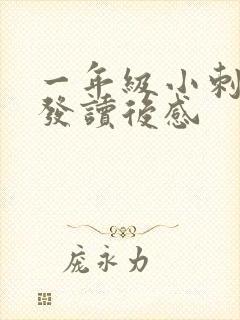 一年級小刺
發讀後感
龐永力